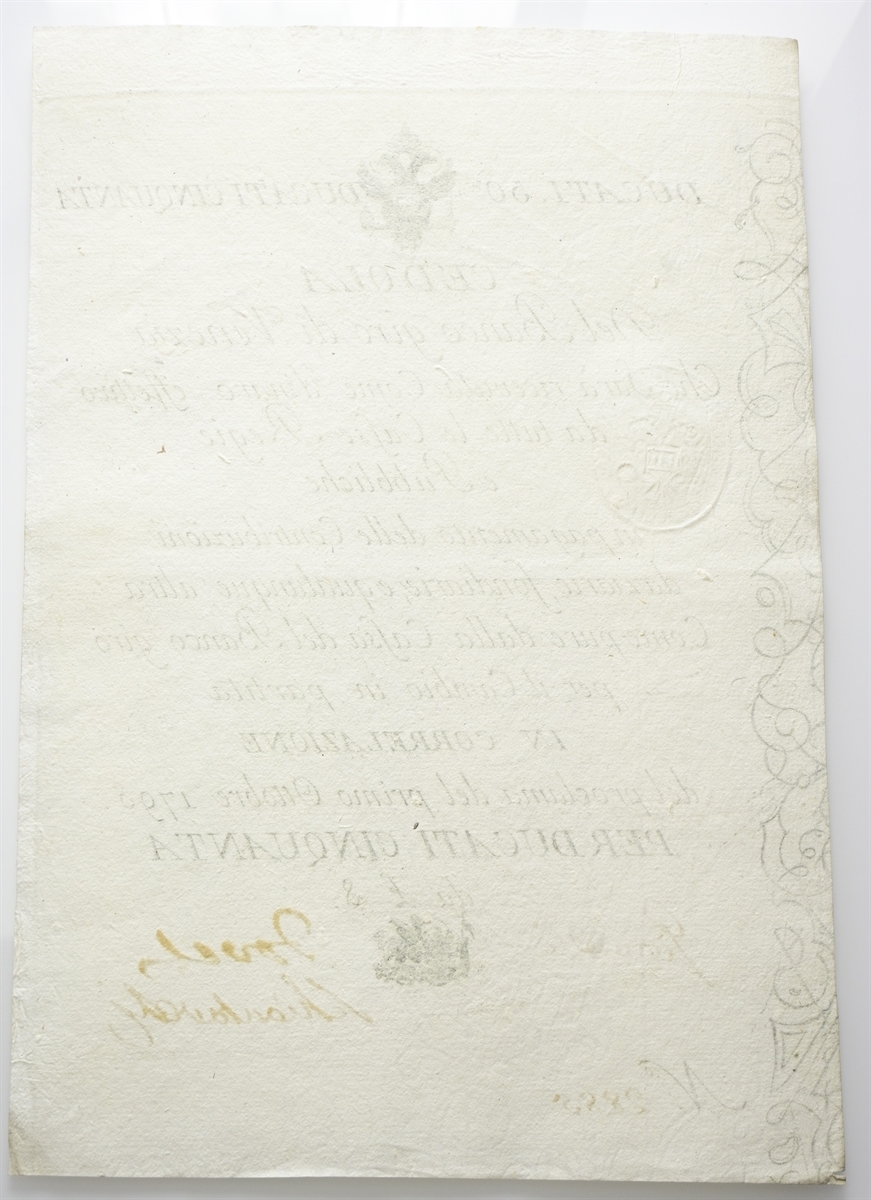 DUCATI. 50 DUCATI CINQUANTA
CEDOLA
Del Banco giro di Venezia
Che sarà ricevuta Come denaro effettivo
da tutte le Casse Regie
e Pubbliche
in pagamento delle Contribuzioni
dirette fondiarie, e qualunque altra
Come pure dalla Cassa del Banco giro
per il Cambio in partita
IN CORRELAZIONE
del proclama del primo Ottobre 1798
PER DUCATI CINQUANTA
da L. 8.
N.